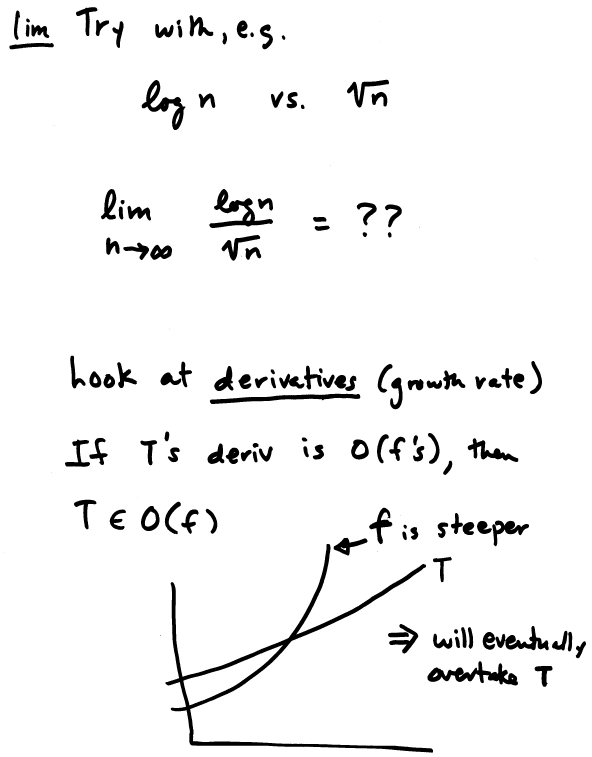 lim Try with, e.g.
log n vs. √n
lim n→∞ log n / √n = ??
Look at derivatives (growth rate)
If T's deriv is O(f's), then
T ∈ O(f)
f is steeper
T
⇒ will eventually
overtake T